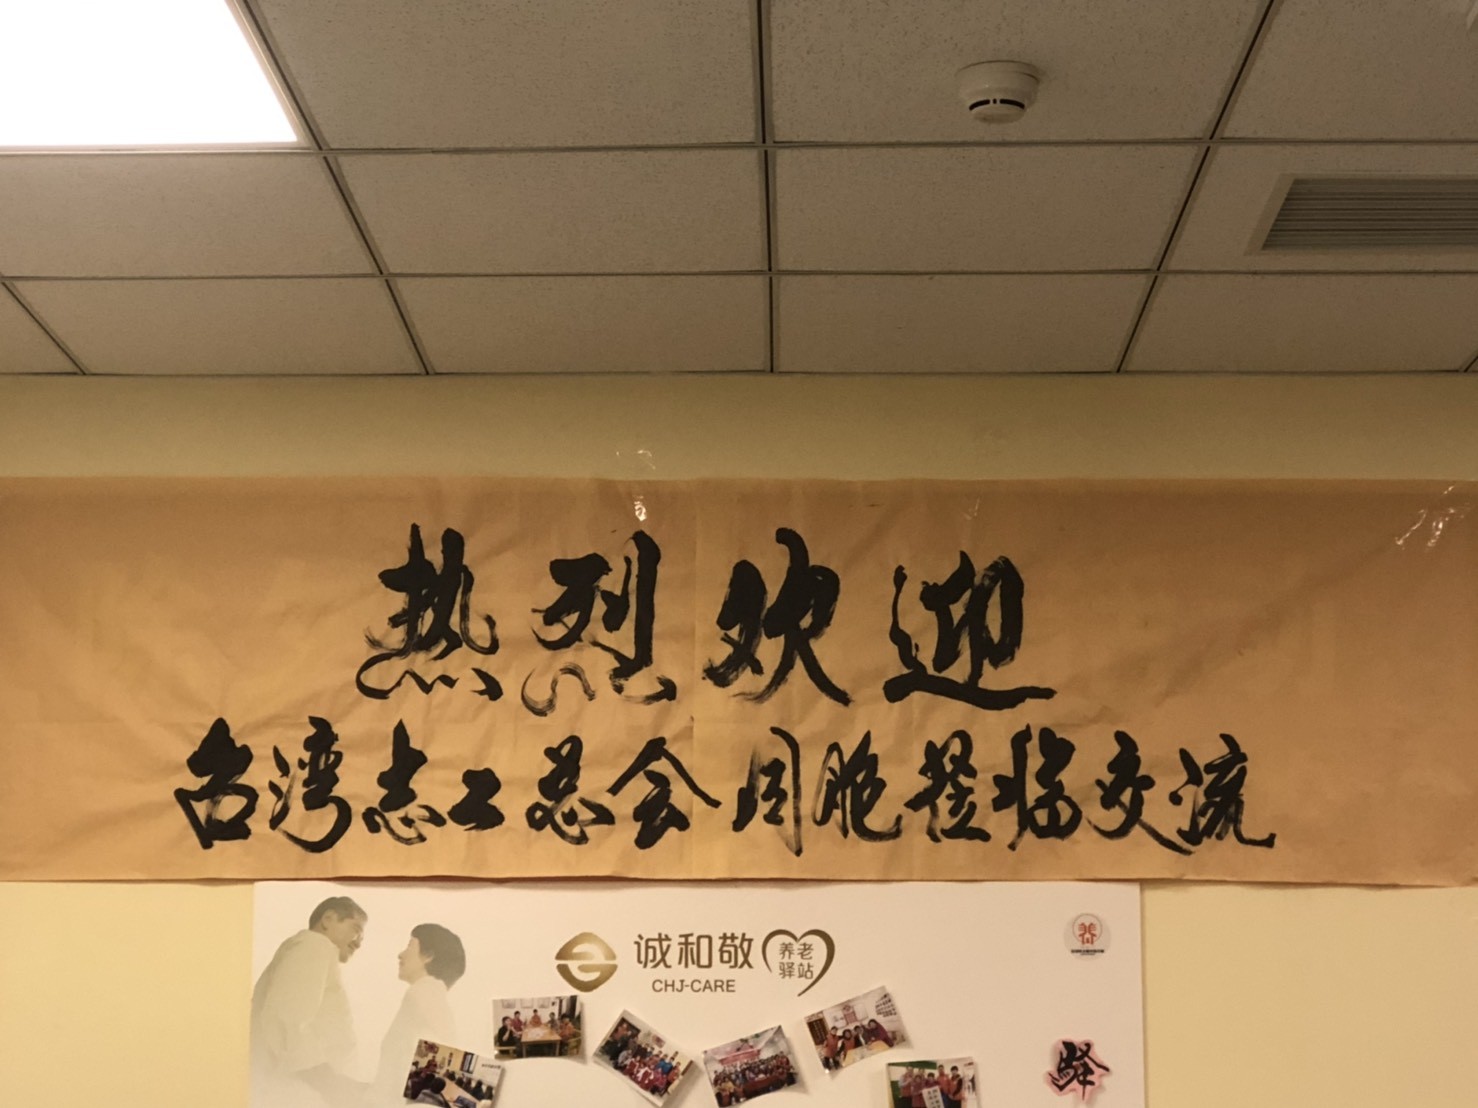 热烈欢迎
台湾志工总会同胞莅临交流
诚和敬
养老
驿站
CHJ-CARE
驿